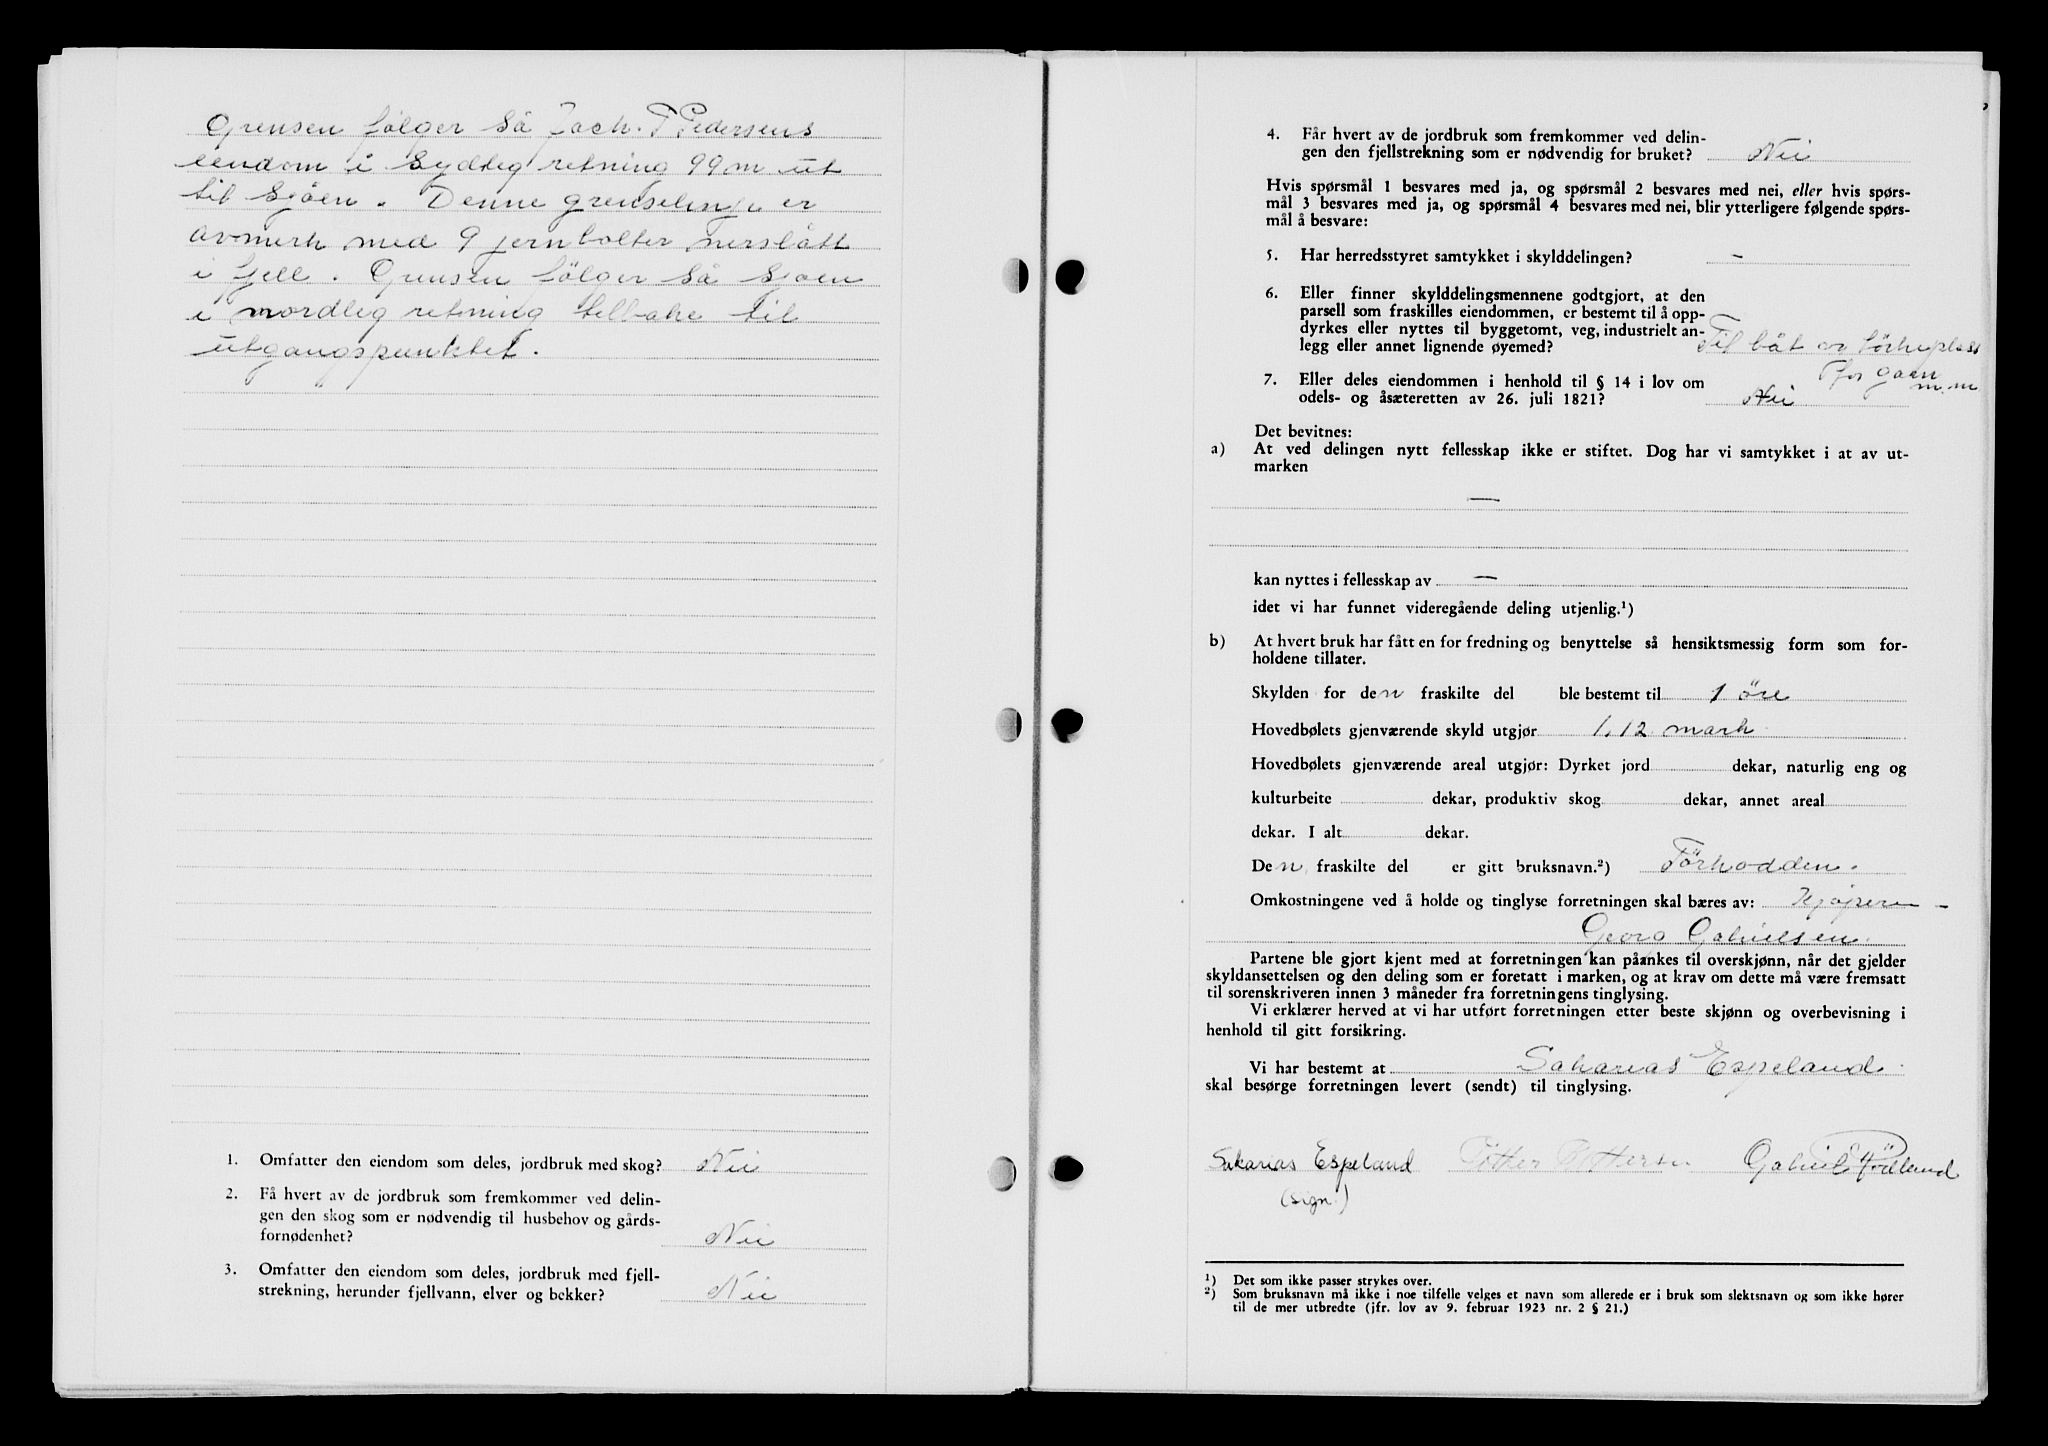 Grensen følger så Zach. T Pedersens
eendom i sydleg retning 99 m ut
til sjöen. Denne grenselinje er
avmerk med 9 jernbolter nerslått
i fjell. Grensen fölger så sjoen
i nordleg retning telbake til
utgangspunktet.
1. Omfatter den eiendom som deles, jordbruk med skog? Nei
2. Få hvert av de jordbruk som fremkommer ved delin-
gen den skog som er nødvendig til husbehov og gårds-
fornødenhet? Nei
3. Omfatter den eiendom som deles, jordbruk med fjell-
strekning, herunder fjellvann, elver og bekker? Nei
4. Får hvert av de jordbruk som fremkommer ved delin-
gen den fjellstrekning som er nødvendig for bruket? Nei
Hvis spørsmål 1 besvares med ja, og spørsmål 2 besvares med nei, eller hvis spørs-
mål 3 besvares med ja, og spørsmål 4 besvares med nei, blir ytterligere følgende spørs-
mål å besvare:
5. Har herredsstyret samtykket i skylddelingen? -
6. Eller finner skylddelingsmennene godtgjort, at den
parsell som fraskilles eiendommen, er bestemt til å opp-
dyrkes eller nyttes til byggetomt, veg, industrielt an-
legg eller annet lignende øyemed? Til båt og törkeplass
for garn
m.m
7. Eller deles eiendommen i henhold til § 14 i lov om
odels- og åsæteretten av 26. juli 1821? Nei
Det bevitnes:
a) At ved delingen nytt fellesskap ikke er stiftet. Dog har vi samtykket i at av ut-
marken
—
kan nyttes i fellesskap av —
idet vi har funnet videregående deling utjenlig.¹)
b) At hvert bruk har fått en for fredning og benyttelse så hensiktsmessig form som for-
holdene tillater.
Skylden for den fraskilte del ble bestemt til 1 öre
Hovedbølets gjenværende skyld utgjør 1,12 mark
Hovedbølets gjenværende areal utgjør: Dyrket jord dekar, naturlig eng og
kulturbeite dekar, produktiv skog dekar, annet areal
dekar. I alt dekar.
Den fraskilte del er gitt bruksnavn.²) Törhodden.
Omkostningene ved å holde og tinglyse forretningen skal bæres av: Kjøperen -
Georg Gabrielsen.
Partene ble gjort kjent med at forretningen kan påankes til overskjønn, når det gjelder
skyldansettelsen og den deling som er foretatt i marken, og at krav om dette må være fremsatt
til sorenskriveren innen 3 måneder fra forretningens tinglysing.
Vi erklærer herved at vi har utført forretningen etter beste skjønn og overbevisning i
henhold til gitt forsikring.
Vi har bestemt at Sakarias Espeland
skal besørge forretningen levert (sendt) til tinglysing.
Sakarias Espeland Gabriel Födland
(sign.)
¹) Det som ikke passer strykes over.
²) Som bruksnavn må ikke i noe tilfelle velges et navn som allerede er i bruk som slektsnavn og som ikke hører
til de mer utbredte (jfr. lov av 9. februar 1923 nr. 2 § 21.)